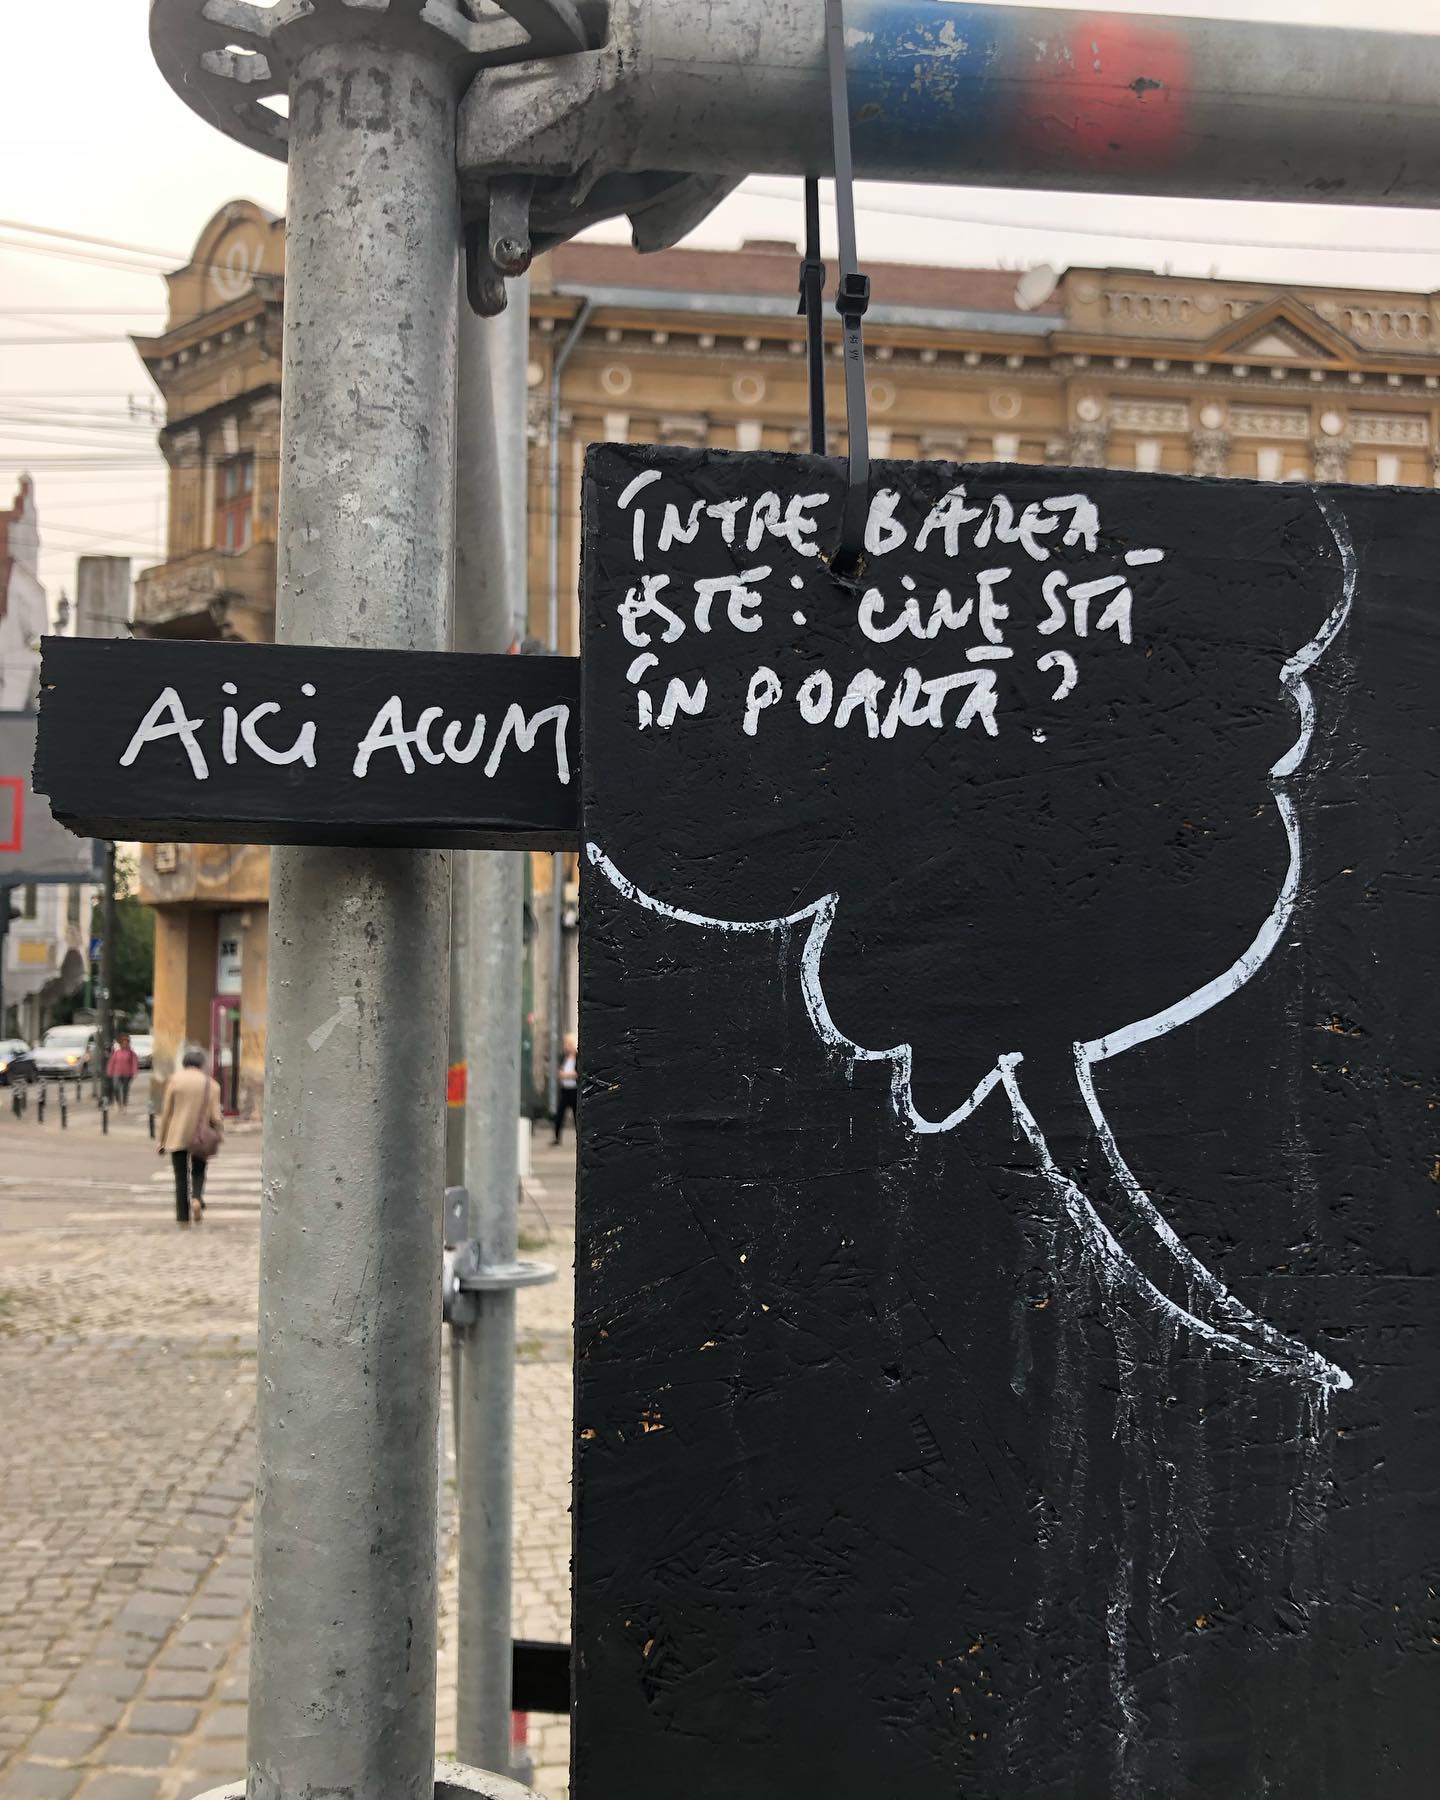 AiCi ACUM
ÎNTRE BAREA
ESTE: CINE STĂ
ÎN POARTĂ?